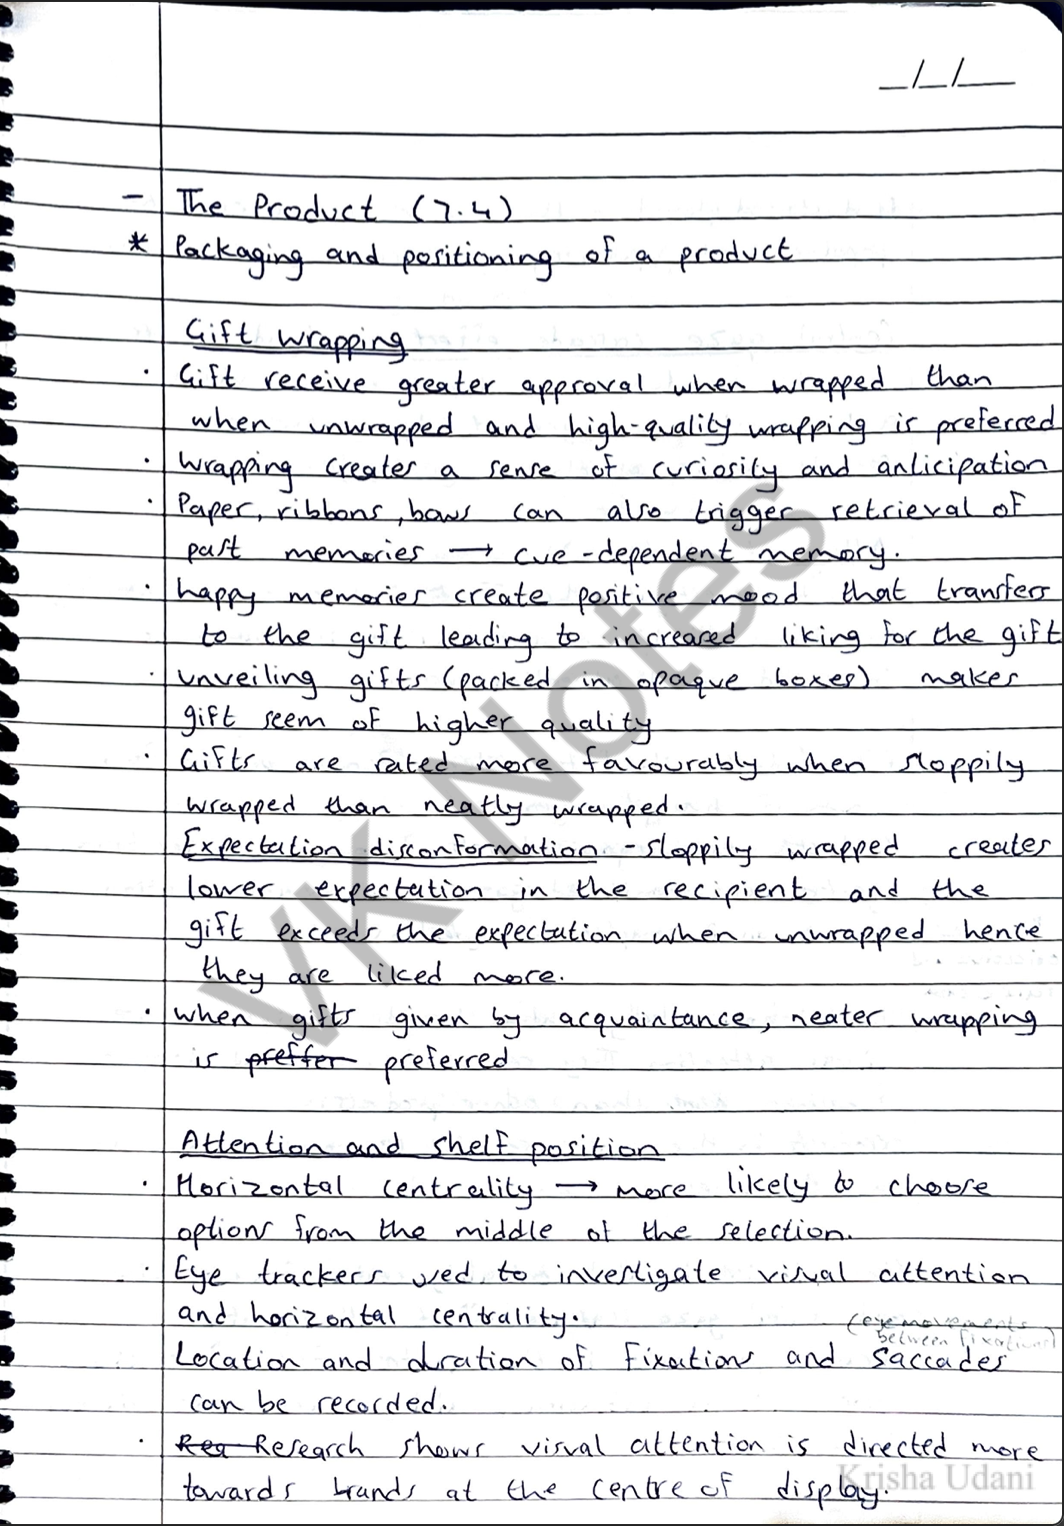 _/_/__
- The Product (7.4)
* Packaging and positioning of a product
Gift wrapping
· Gift receive greater approval when wrapped than
when unwrapped and high-quality wrapping is preferred
· Wrapping creates a sense of curiosity and anticipation
· Paper, ribbons, bows can also trigger retrieval of
past memories → cue-dependent memory.
· happy memories create positive mood that transfers
to the gift leading to increased liking for the gift
· unveiling gifts (packed in opaque boxes) makes
gift seem of higher quality
· Gifts are rated more favourably when sloppily
wrapped than neatly wrapped.
Expectation disconformation - sloppily wrapped creates
lower expectation in the recipient and the
gift exceeds the expectation when unwrapped hence
they are liked more.
· when gifts given by acquaintance, neater wrapping
is preffer preferred
Attention and shelf position
· Horizontal centrality → more likely to choose
options from the middle of the selection.
· Eye trackers used to investigate visual attention
and horizontal centrality.
(eye movements
between fixations)
Location and duration of fixations and saccades
can be recorded.
· Res Research shows visual attention is directed more
towards brands at the centre of display.
VK Notes
Krisha Udani